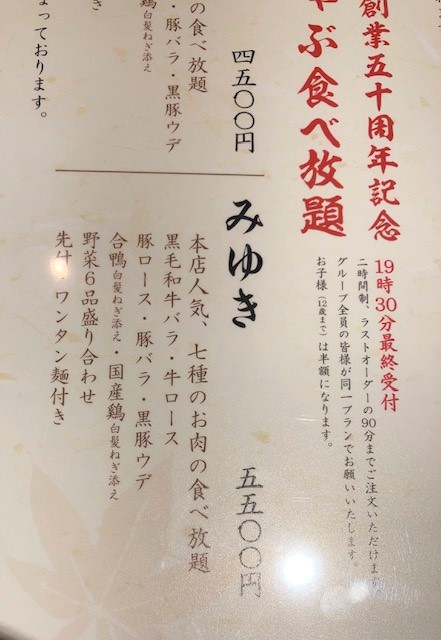 創業五十周年記念
ぶ食べ放題
19時30分最終受付
二時間制、ラストオーダーの90分までご注文いただけます
グループ全員の皆様が同一プランでお願いいたします。
お子様(12歳まで)は半額になります。
の食べ放題
・豚バラ・黒豚ウデ
鶏白髪ねぎ添え
き
まっております。
四五〇〇円
みゆき
五五〇〇円
本店人気、七種のお肉の食べ放題
黒毛和牛バラ・牛ロース
豚ロース・豚バラ・黒豚ウデ
合鴨白髪ねぎ添え・国産鶏白髪ねぎ添え
野菜6品盛り合わせ
先付 ワンタン麺付き